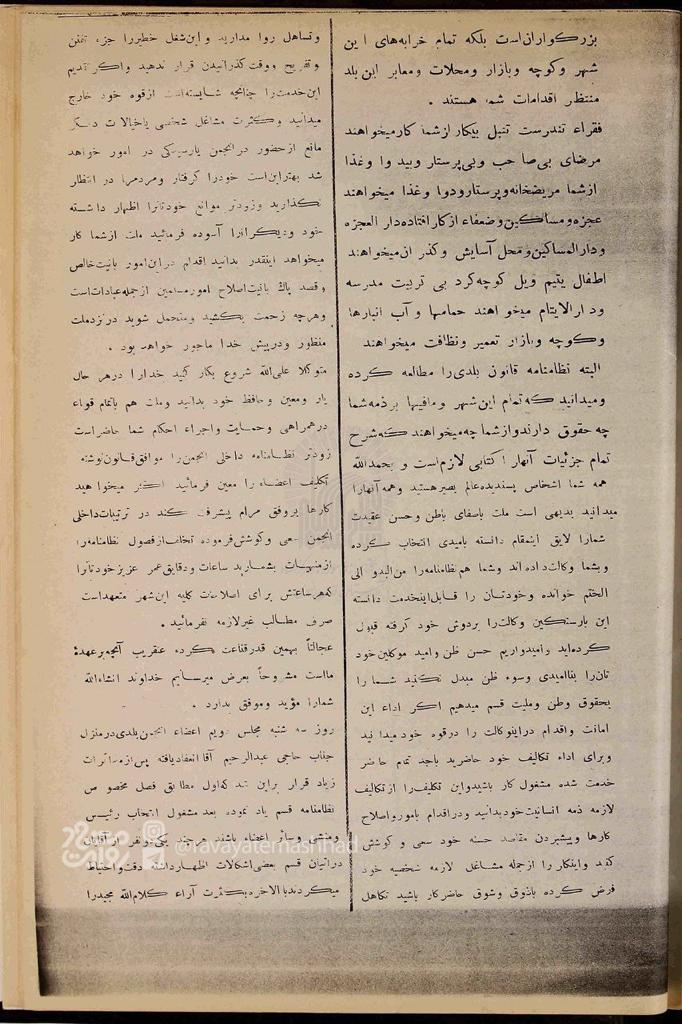 بزرگواران است بلکه تمام خرابه‌های این
شهر وکوچه وبازار ومحلات ومعابر این بلد
منتظر اقدامات شما هستند .
فقراء تندرست تنبل بیکار از شما کار میخواهند
مرضای بی صاحب وبی پرستار وبیدوا وغذا
از شما مریضخانه وپرستار ودوا وغذا میخواهند
عجزه ومساکین وضعفاء از کار افتاده دار العجزه
ودار المساکین ومحل آسایش وگذران میخواهند
اطفال یتیم ویل کوچه گرد بی تربیت مدرسه
ودار الایتام میخواهند حمامها و آب انبارها
وکوچه وبازار تعمیر ونظافت میخواهند
البته نظامنامه قانون بلدی را مطالعه کرده
ومیدانید که تمام این شهر ومافیها بر ذمه شما
چه حقوق دارند واز شما چه میخواهند که شرح
تمام جزئیات آنها را کتابی لازم است و بحمدالله
همه شما اشخاص پسندیده عالم بصیر هستید وهمه آنها را
میدانید بدیهی است ملت باصفای باطن وحسن عقیدت
شما را لایق اینمقام دانسته بامیدی انتخاب کرده
وبشما وکالت داده اند وشما هم نظامنامه را من البدو الی
الختم خوانده وخودتان را قابل اینخدمت دانسته
این بار سنگین وکالت را بردوش خود گرفته قبول
کرده اید وامیدواریم حسن ظن وامید موکلین خود
تان را بناامیدی وسوء ظن مبدل نکنید شما را
بحقوق وطن وملیت قسم میدهیم اگر اداء این
امانت واقدام در اینوکالت را در قوه خود میدانید
وبرای اداء تکالیف خود حاضرید باجد تمام حاضر
خدمت شده مشغول کار باشید واین تکلیف را از تکالیف
لازمه ذمه انسانیت خود بدانید ودر اقدام بامور واصلاح
کارها وپیشبردن مقاصد حسنه خود سعی و کوشش
کنید واینکار را از جمله مشاغل لازمه شخصیه خود
فرض کرده باذوق وشوق حاضر کار باشید تکاهل
وتساهل روا مدارید واین شغل خطیر را جزء تفنن
وتفریح ووقت گذرانیدن قرار ندهید واگر تقدیم
این خدمت را چنانچه شایسته است از قوه خود خارج
میدانید وکثرت مشاغل شخصی یاخیالات دیگر
مانع از حضور در انجمن یارسیدگی در امور خواهد
شد بهتر این است خود را گرفتار ومردم را در انتظار
نگذارید وزودتر موانع خودتانرا اظهار داشته
خود ودیگرانرا آسوده فرمائید ملت از شما کار
میخواهد اینقدر بدانید اقدام در این امور بانیت خالص
وقصد پاک بانیت اصلاح امور مسلمین از جمله عبادات است
وهرچه زحمت بکشید ومتحمل شوید در نزد ملت
منظور ودر پیش خدا ماجور خواهد بود .
متوکلا علی الله شروع بکار کنید خدا را در هر حال
یار ومعین و حافظ خود بدانید وملت هم باتمام قواء
در همراهی وحمایت واجراء احکام شما حاضر است
زودتر نظامنامه داخلی انجمن را موافق قانون نوشته
تکلیف اعضاء را معین فرمائید اگر میخواهید
کارها بر وفق مرام پیشرفت کند در ترتیبات داخلی
انجمن سعی وکوشش فرموده تخلف از فصول نظامنامه را
از منهیات بشمارید ساعات ودقایق عمر عزیز خودتانرا
که هر ساعتش برای اصلاحات کلیه این شهر متعهد است
صرف مطالب غیر لازمه نفرمائید .
عجالتاً بهمین قدر قناعت کرده عنقریب آنچه بر عهده
ما است مشروحاً بعرض میرسانیم خداوند انشاءالله
شما را مؤید وموفق بدارد .
روز سه شنبه مجلس دویم اعضاء انجمن بلدی در منزل
جناب حاجی عبدالرحیم آقا انعقاد یافته پس از مذاکرات
زیاد قرار بر این شد که اول مطابق فصل مخصوص
نظامنامه قسم یاد نموده بعد مشغول انتخاب رئیس
ومنشی وسائر اعضاء باشند هرچند یکی دو نفر از آقایان
در اتیان قسم بعضی اشکالات اظهار داشته دقت واحتیاط
میکردند بالاخره بکثرت آراء کلام الله مجید را
@ravayatemashhad